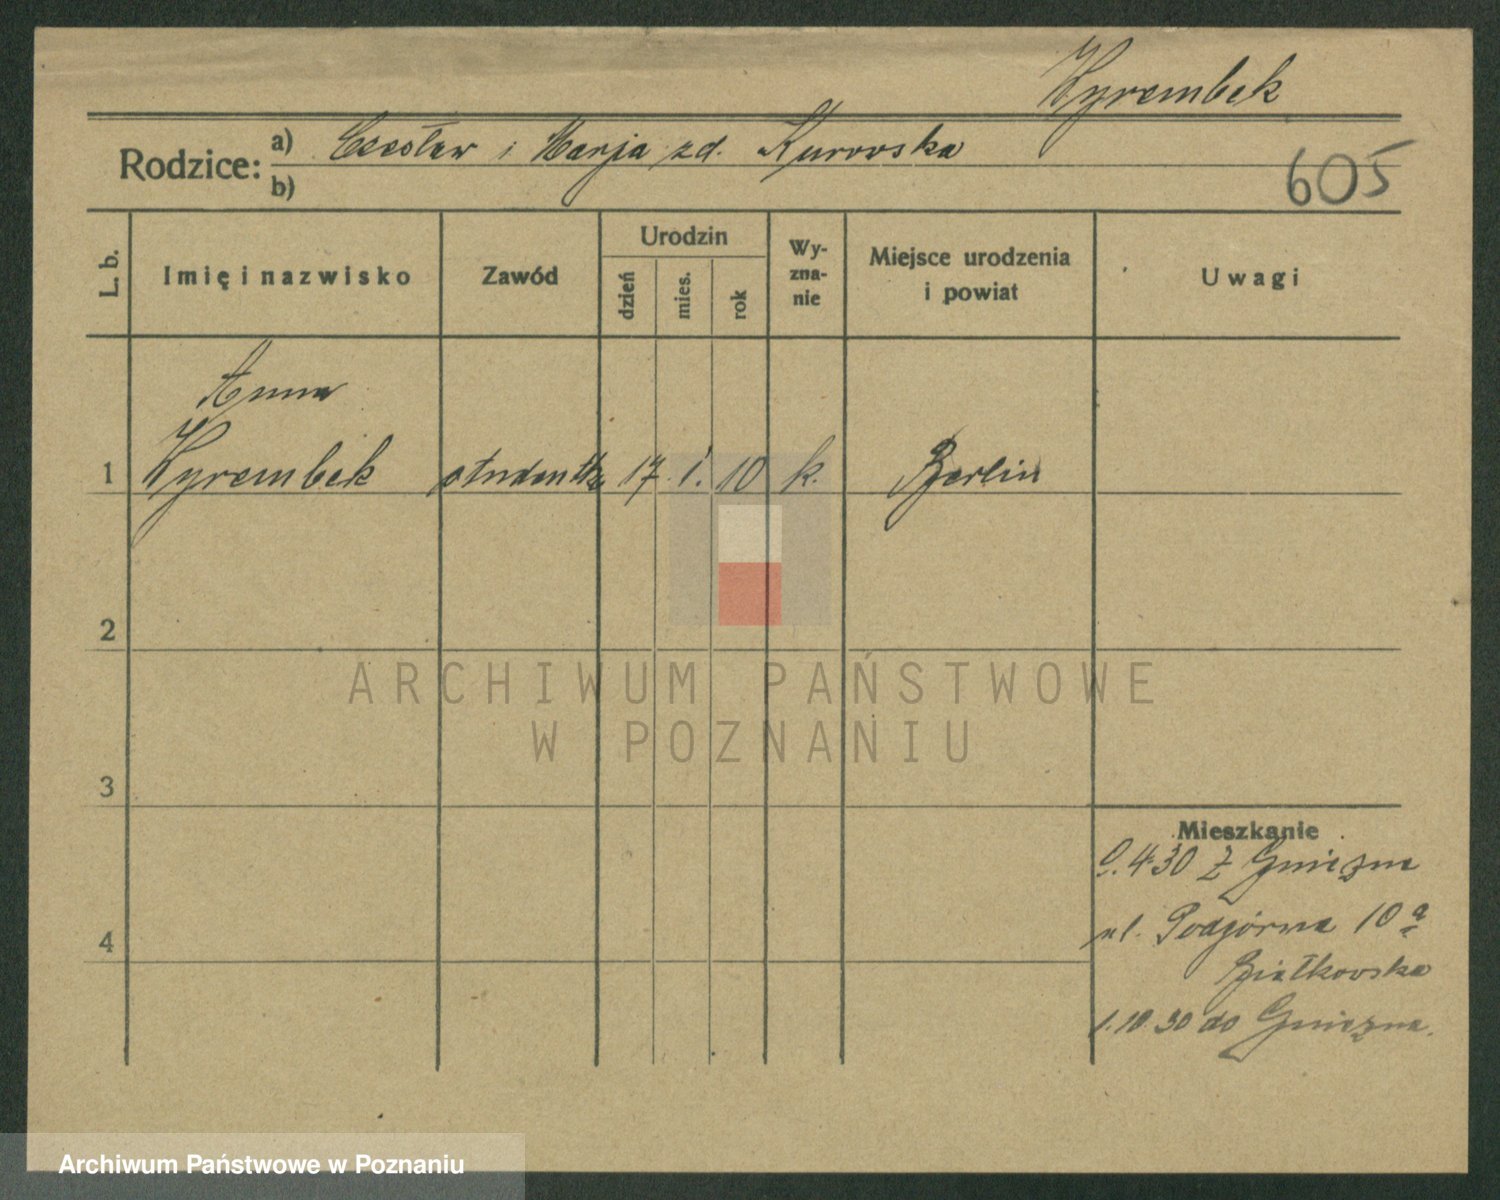 Wyrembek
Rodzice: a) Czesław i Marja zd. Kurowska
b)
605
L. b.
Imię i nazwisko
Zawód
Urodzin
dzień
mies.
rok
Wy-
zna-
nie
Miejsce urodzenia
i powiat
Uwagi
Anna
1 Wyrembek studentka 17. 1. 10 k. Berlin
2
ARCHIWUM PAŃSTWOWE
W POZNANIU
3
Mieszkanie
4.30 z Gniezna
4
ul. Podgórna 10 a
Białkowska
1.10.30 do Gniezna.
Archiwum Państwowe w Poznaniu